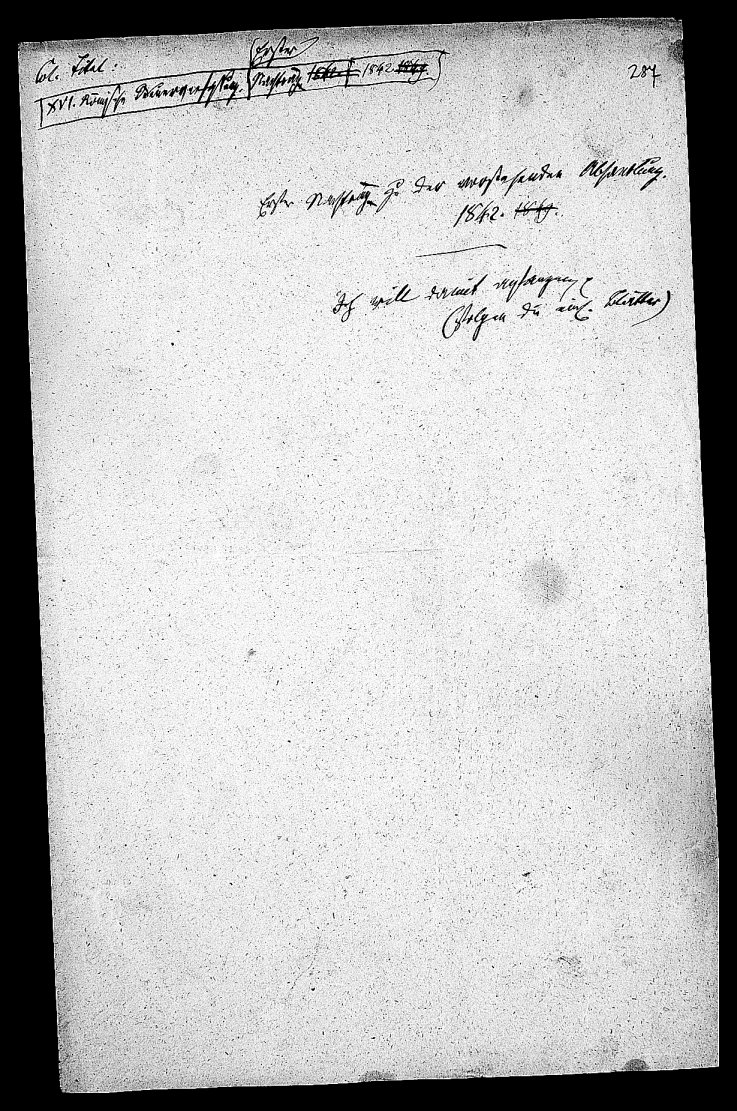 Col. Titel:
Erster
XVI. Römische Steuerverfassung. Nachtrag 1842
287
Erster Nachtrag zu der vorstehenden Abhandlung.
1842.
Ich will damit anfangen,
(Folgen die einz. Blätter)